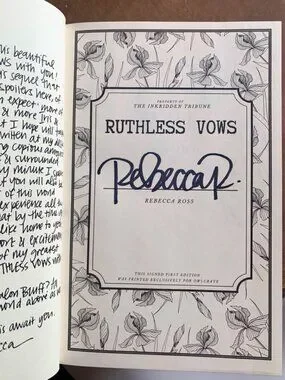 beautiful
ows with you!
is sequel that
spoilers here, of
expect: more of
& more Iris &
t I hope will
at my
copious amounts
& surrounded
ry minute I
if you will
of this world
experience all the
at by the time
like home to you
ort & excitement
of my greatest
THLESS VOWS with
Bluff? An
world above
is await you.
cca
PROPERTY OF
THE INKRIDDEN TRIBUNE
RUTHLESS VOWS
Rebecca R.
REBECCA ROSS
THIS SIGNED FIRST EDITION
WAS PRINTED EXCLUSIVELY FOR OWLCRATE